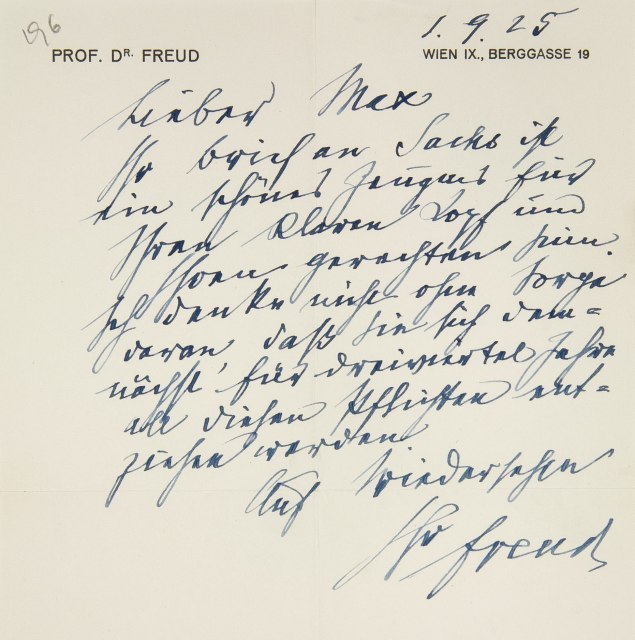 196
1.9.25
PROF. DR. FREUD WIEN IX., BERGGASSE 19
Lieber Max
Ihr Brief an Sachs ist
ein schönes Zeugnis für
Ihren klaren Kopf und
Ihren gerechten Sinn.
Ich denke nicht ohne Sorge
daran, daß Sie sich dem-
nächst für dreiviertel Jahre
all diesen Pflichten ent-
ziehen werden
Auf Wiedersehen
Ihr Freud